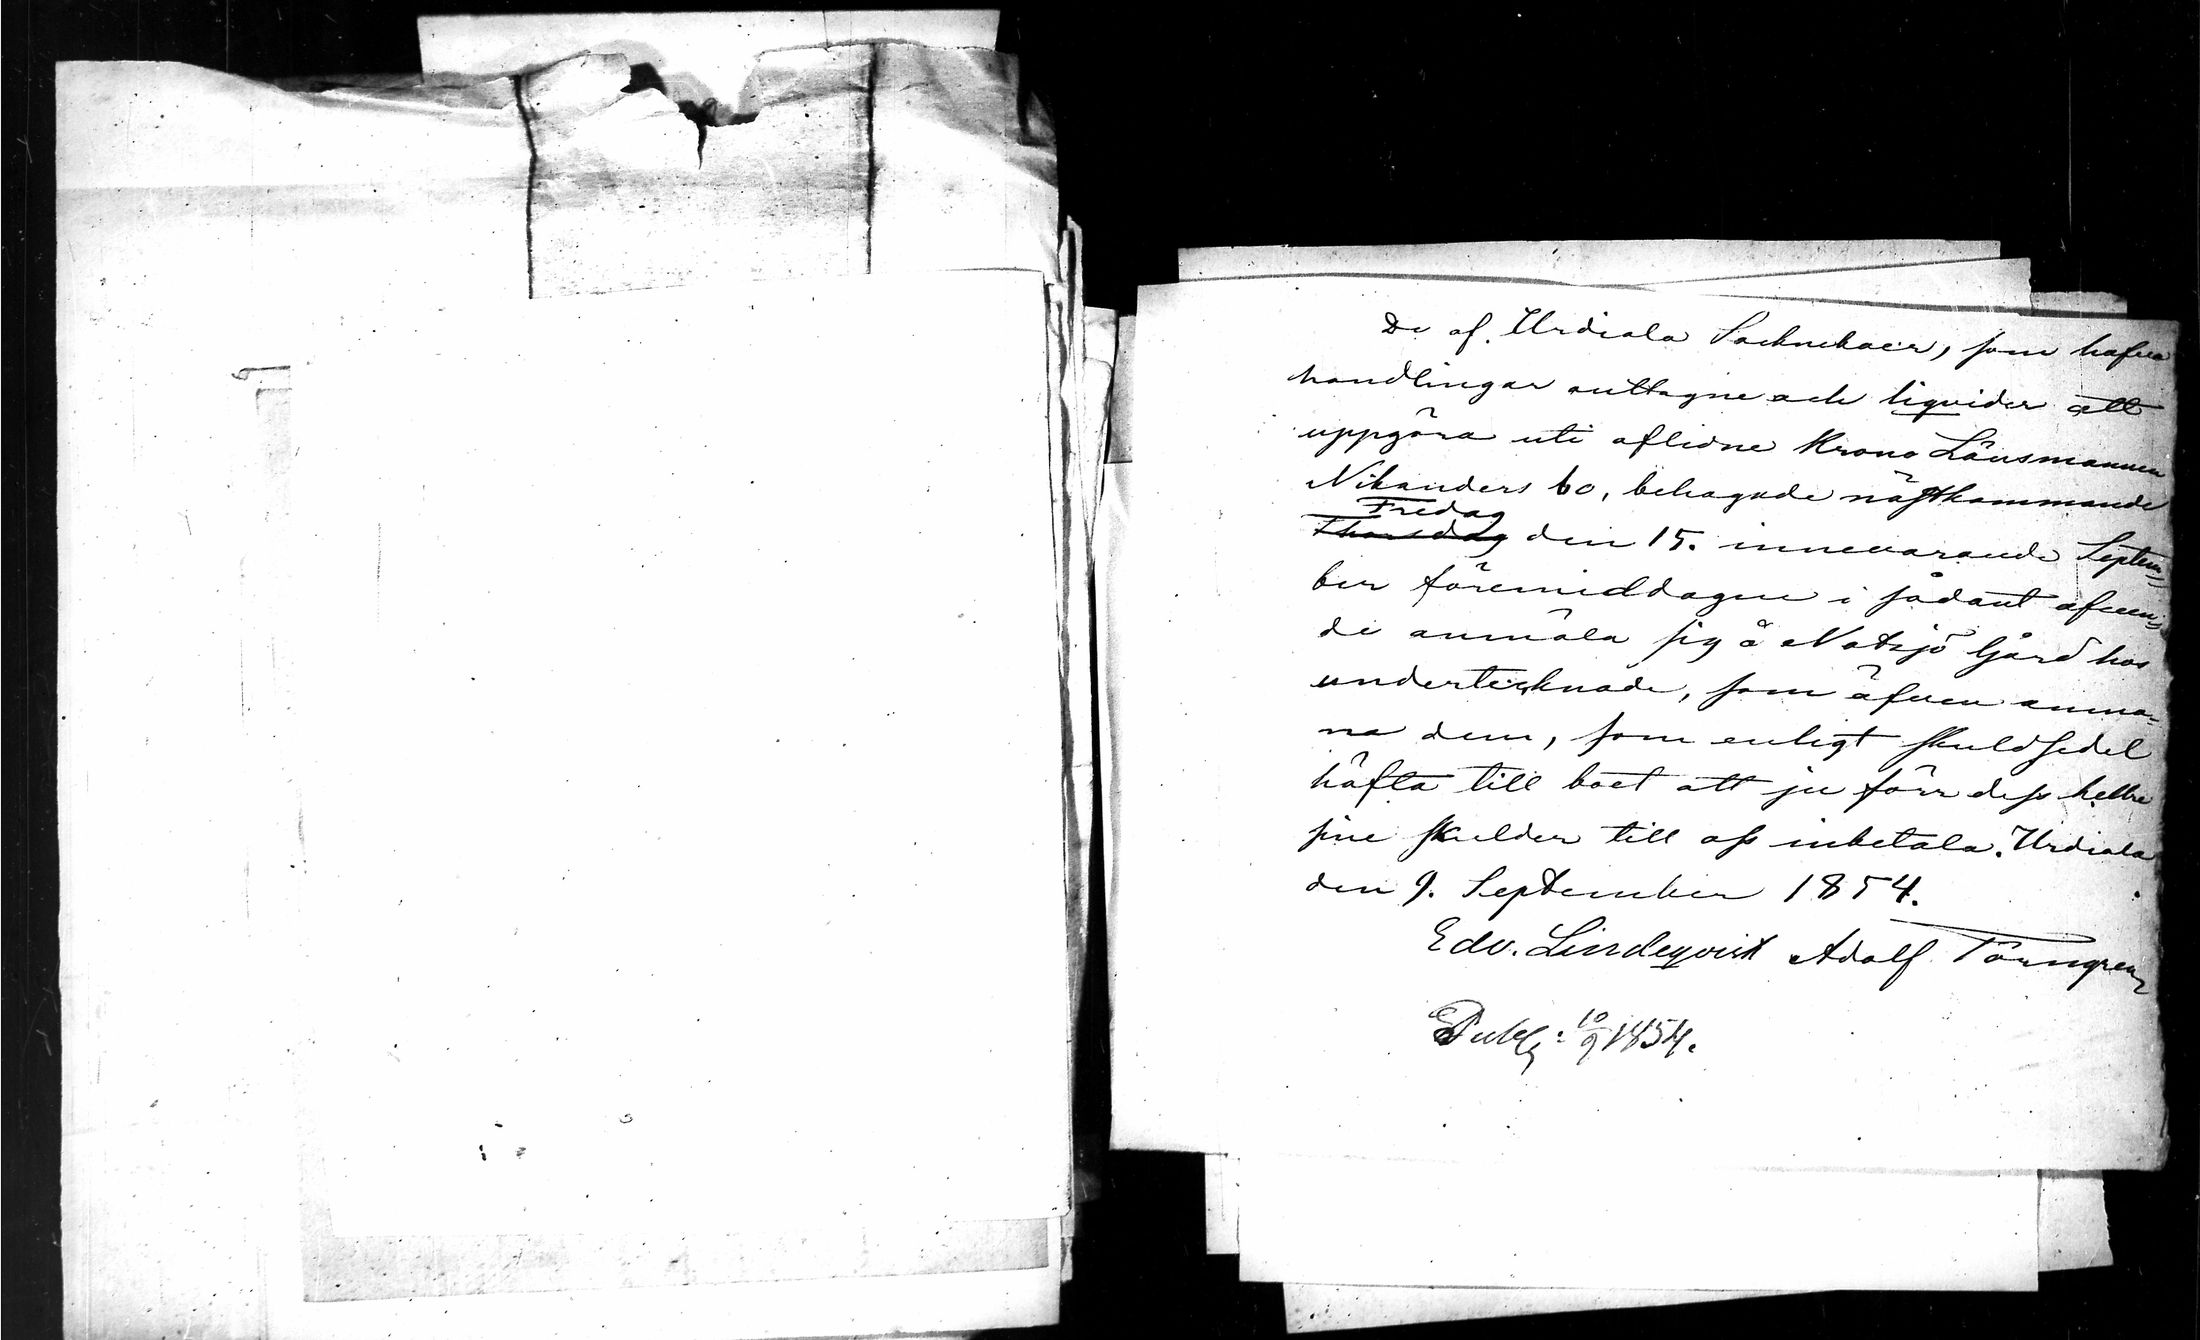 De af Urdiala Sockneboer, som hafva
handlingar anttagne och liqvider att
uppgöra uti aflidne Krono Länsmannen
Nikanders bo, behagade nästkommande
Fredag
Thorsdag den 15. innevarande Septem-
ber föremiddagen i sådant afseen-
de anmäla sig å Notsjö Gård hos
undertecknade, som äfven anma-
na dem, som enligt skuldsedel
häfta till boet att ju förr dess hellre
sine skulder till oss inbetala. Urdiala
den 9. September 1854.
Edv. Lindeqvist Adolf Törngren
Publ: 10/9 1854.